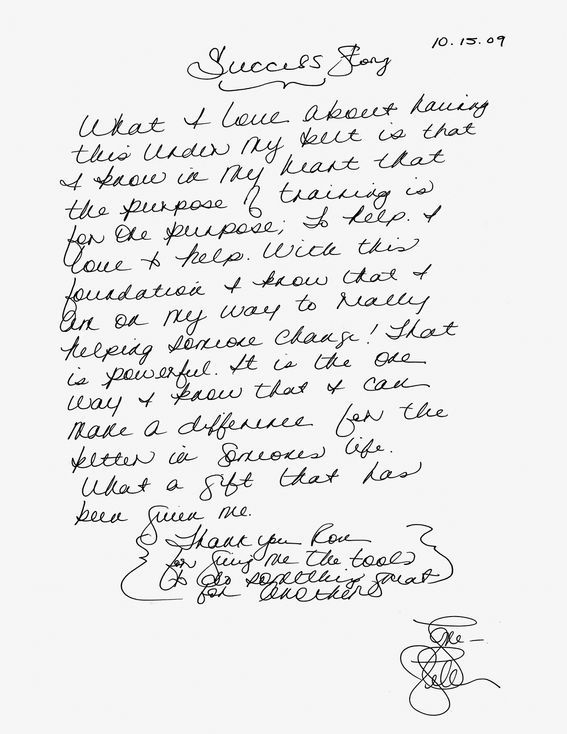 10.15.09
Success Story
What I love about having
this under my belt is that
I know in my heart that
the purpose of training is
for one purpose; to help. I
love to help. With this
foundation I know that I
am on my way to really
helping someone change! That
is powerful. It is the one
way I know that I can
make a difference for the
better in someones life.
What a gift that has
been given me.
Thank you Ron
for giving me the tools
to do something great
for another